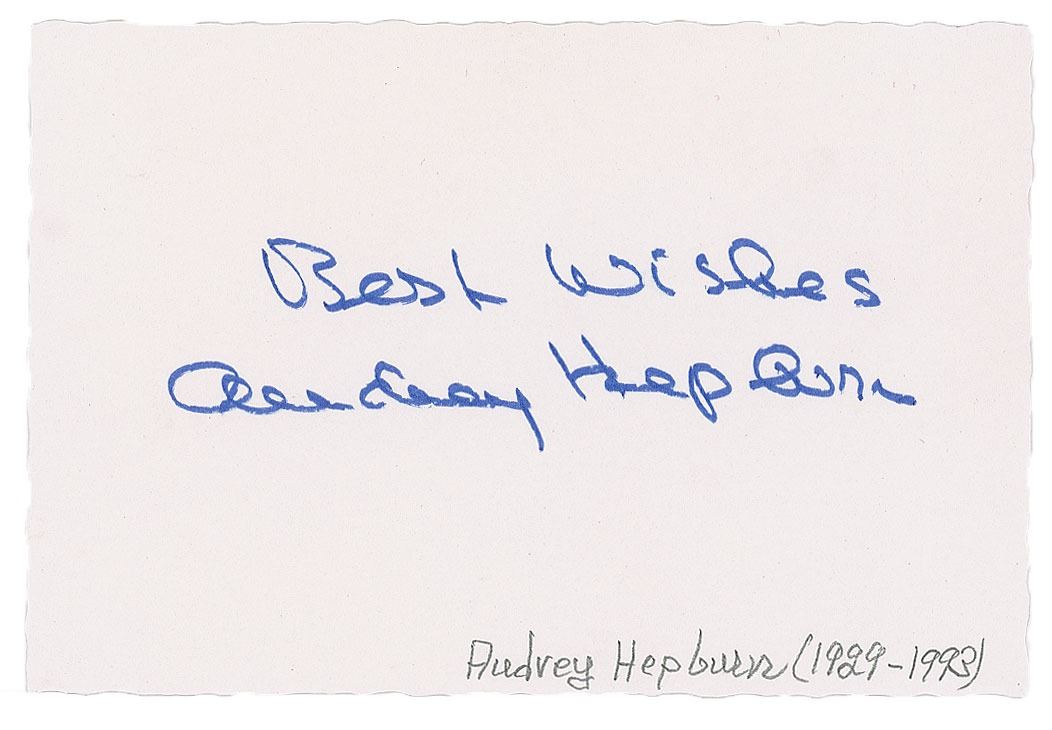 Best Wishes
Audrey Hepburn
Audrey Hepburn (1929-1993)